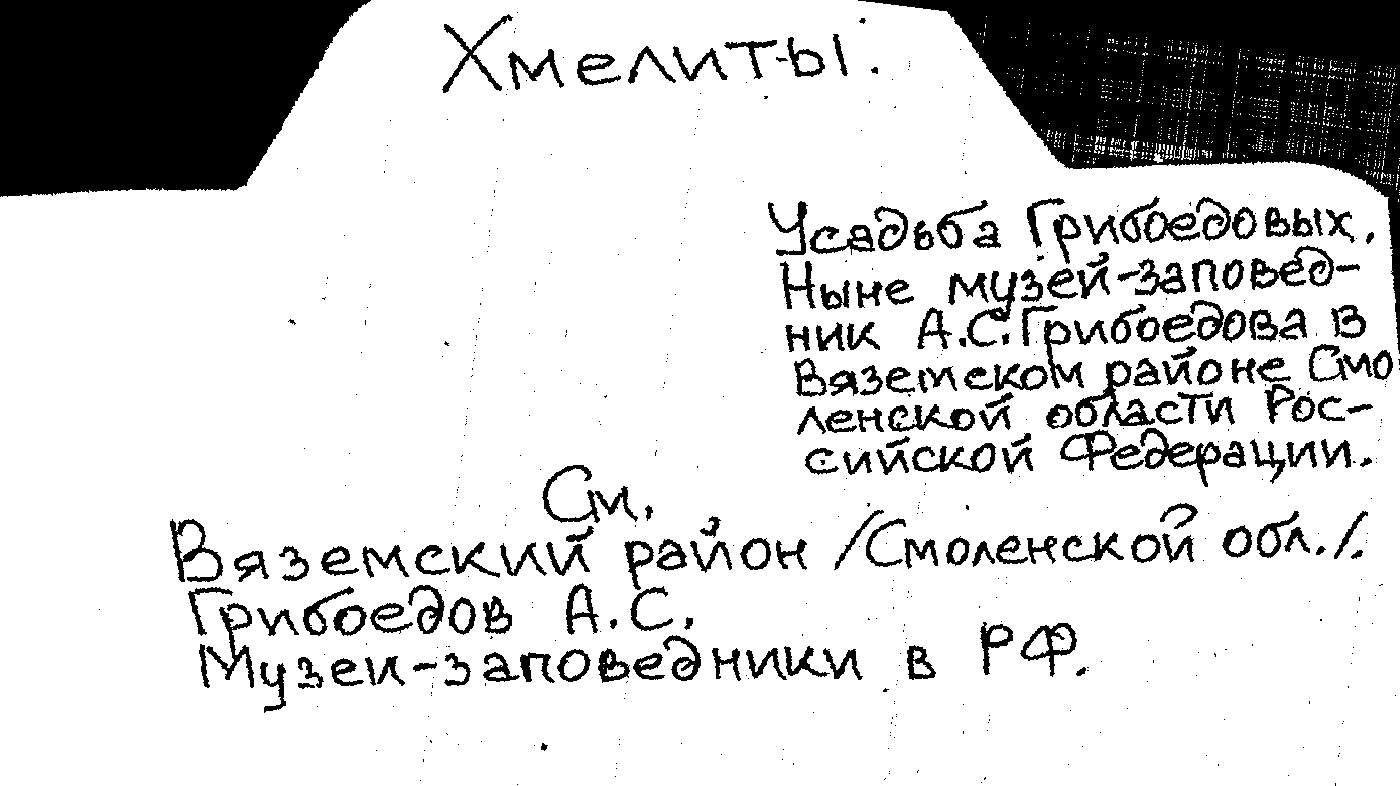 Хмелиты.
Усадьба Грибоедовых.
Ныне музей-заповед-
ник А.С. Грибоедова в
Вяземском районе Смо
ленской области Рос-
сийской Федерации.
См.
Вяземский район /Смоленской обл./.
Грибоедов А.С.
Музеи-заповедники в РФ.